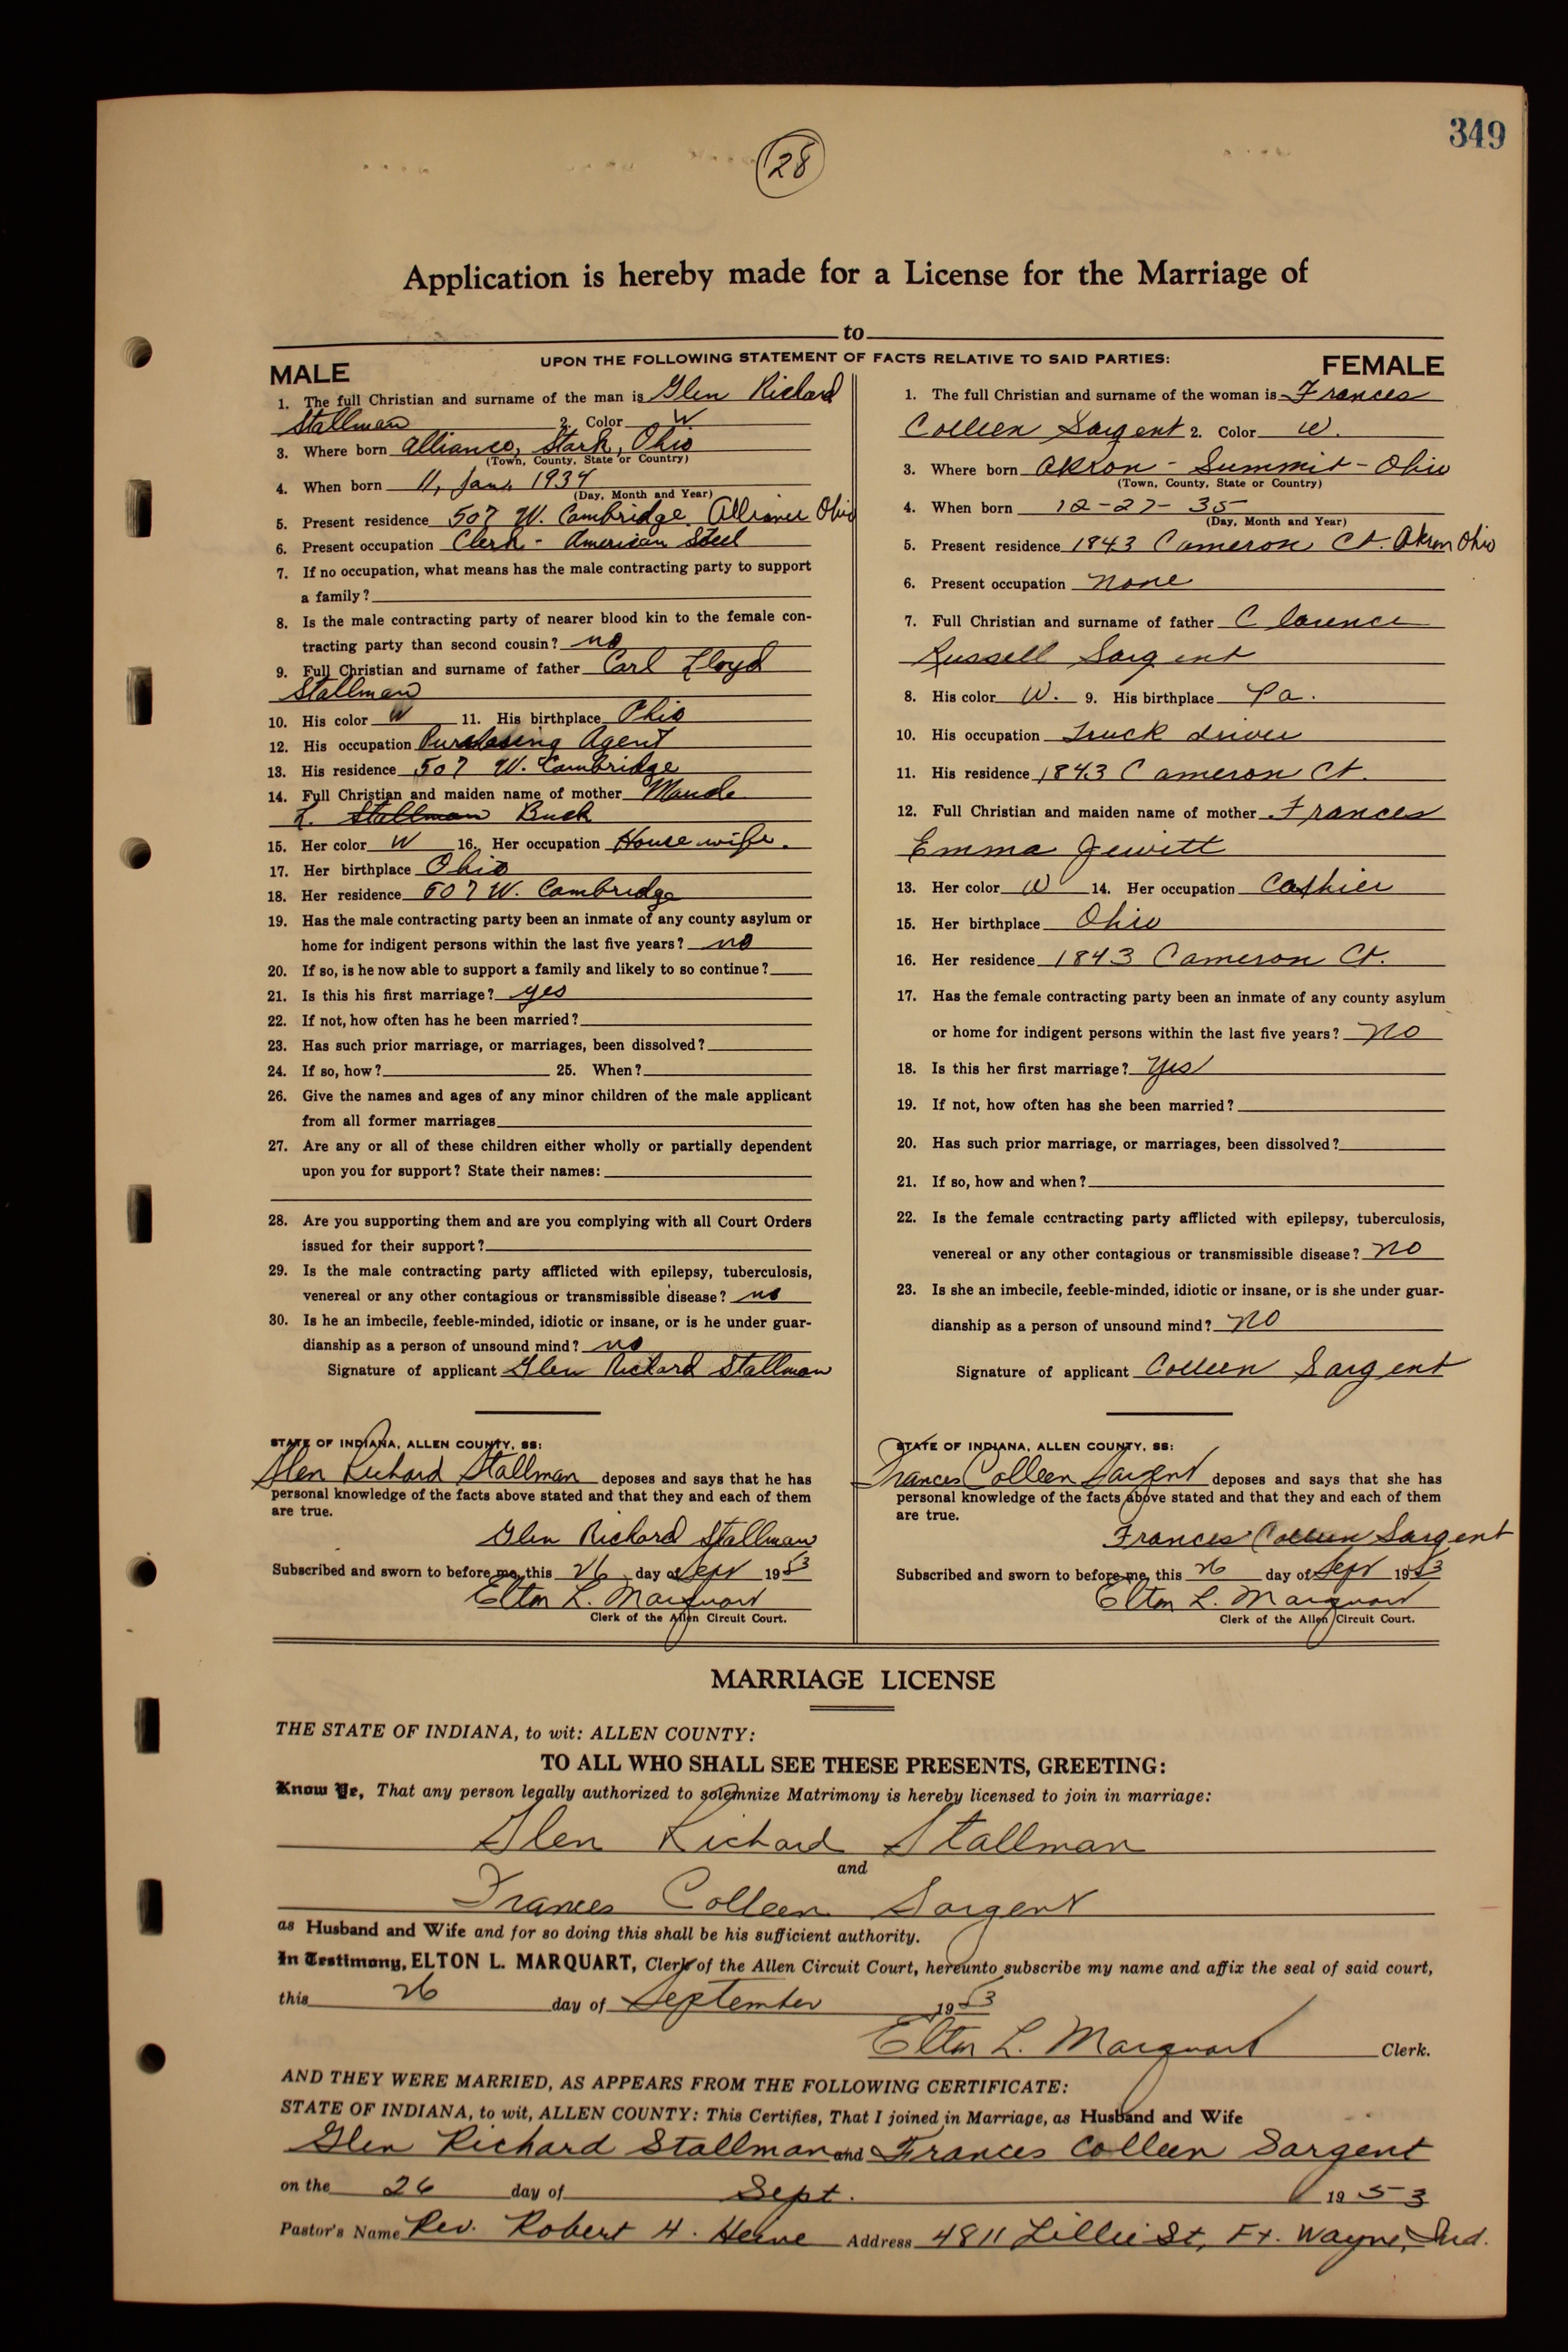 349
28
Application is hereby made for a License for the Marriage of
to
UPON THE FOLLOWING STATEMENT OF FACTS RELATIVE TO SAID PARTIES:
MALE
1. The full Christian and surname of the man is Glen Richard
Stallman 2. Color W
3. Where born Alliance, Stark, Ohio
(Town, County, State or Country)
4. When born 11, Jan. 1934
(Day, Month and Year)
5. Present residence 507 W. Cambridge Alliance Ohio
6. Present occupation Clerk - American Steel
7. If no occupation, what means has the male contracting party to support
a family?
8. Is the male contracting party of nearer blood kin to the female con-
tracting party than second cousin? no
9. Full Christian and surname of father Carl Lloyd
Stallman
10. His color W 11. His birthplace Ohio
12. His occupation Purchasing Agent
13. His residence 507 W. Cambridge
14. Full Christian and maiden name of mother Maude
L. Stallman Buck
15. Her color W 16. Her occupation House wife.
17. Her birthplace Ohio
18. Her residence 507 W. Cambridge
19. Has the male contracting party been an inmate of any county asylum or
home for indigent persons within the last five years? no
20. If so, is he now able to support a family and likely to so continue?
21. Is this his first marriage? yes
22. If not, how often has he been married?
23. Has such prior marriage, or marriages, been dissolved?
24. If so, how? 25. When?
26. Give the names and ages of any minor children of the male applicant
from all former marriages
27. Are any or all of these children either wholly or partially dependent
upon you for support? State their names:
28. Are you supporting them and are you complying with all Court Orders
issued for their support?
29. Is the male contracting party afflicted with epilepsy, tuberculosis,
venereal or any other contagious or transmissible disease? no
30. Is he an imbecile, feeble-minded, idiotic or insane, or is he under guar-
dianship as a person of unsound mind? no
Signature of applicant Glen Richard Stallman
STATE OF INDIANA, ALLEN COUNTY, SS:
Glen Richard Stallman deposes and says that he has
personal knowledge of the facts above stated and that they and each of them
are true.
Glen Richard Stallman
Subscribed and sworn to before me, this 26 day of Sept 1953
Elton L. Marquart
Clerk of the Allen Circuit Court.
FEMALE
1. The full Christian and surname of the woman is Frances
Colleen Sargent 2. Color W.
3. Where born Akron - Summit - Ohio
(Town, County, State or Country)
4. When born 12-27-35
(Day, Month and Year)
5. Present residence 1843 Cameron Ct. Akron Ohio
6. Present occupation none
7. Full Christian and surname of father Clarence
Russell Sargent
8. His color W. 9. His birthplace Pa.
10. His occupation Truck driver
11. His residence 1843 Cameron Ct.
12. Full Christian and maiden name of mother Frances
Emma Jewitt
13. Her color W 14. Her occupation Cashier
15. Her birthplace Ohio
16. Her residence 1843 Cameron Ct.
17. Has the female contracting party been an inmate of any county asylum
or home for indigent persons within the last five years? no
18. Is this her first marriage? yes
19. If not, how often has she been married?
20. Has such prior marriage, or marriages, been dissolved?
21. If so, how and when?
22. Is the female contracting party afflicted with epilepsy, tuberculosis,
venereal or any other contagious or transmissible disease? no
23. Is she an imbecile, feeble-minded, idiotic or insane, or is she under guar-
dianship as a person of unsound mind? no
Signature of applicant Colleen Sargent
STATE OF INDIANA, ALLEN COUNTY, SS:
Frances Colleen Sargent deposes and says that she has
personal knowledge of the facts above stated and that they and each of them
are true.
Frances Colleen Sargent
Subscribed and sworn to before me, this 26 day of Sept 1953
Elton L. Marquart
Clerk of the Allen Circuit Court.
MARRIAGE LICENSE
THE STATE OF INDIANA, to wit: ALLEN COUNTY:
TO ALL WHO SHALL SEE THESE PRESENTS, GREETING:
Know Ye, That any person legally authorized to solemnize Matrimony is hereby licensed to join in marriage:
Glen Richard Stallman
and
Frances Colleen Sargent
as Husband and Wife and for so doing this shall be his sufficient authority.
In Testimony, ELTON L. MARQUART, Clerk of the Allen Circuit Court, hereunto subscribe my name and affix the seal of said court,
this 26 day of September 1953
Elton L. Marquart Clerk.
AND THEY WERE MARRIED, AS APPEARS FROM THE FOLLOWING CERTIFICATE:
STATE OF INDIANA, to wit, ALLEN COUNTY: This Certifies, That I joined in Marriage, as Husband and Wife
Glen Richard Stallman and Frances Colleen Sargent
on the 26 day of Sept. 1953
Pastor's Name Rev. Robert H. Address 4811 Lillie St, Ft. Wayne, Ind.